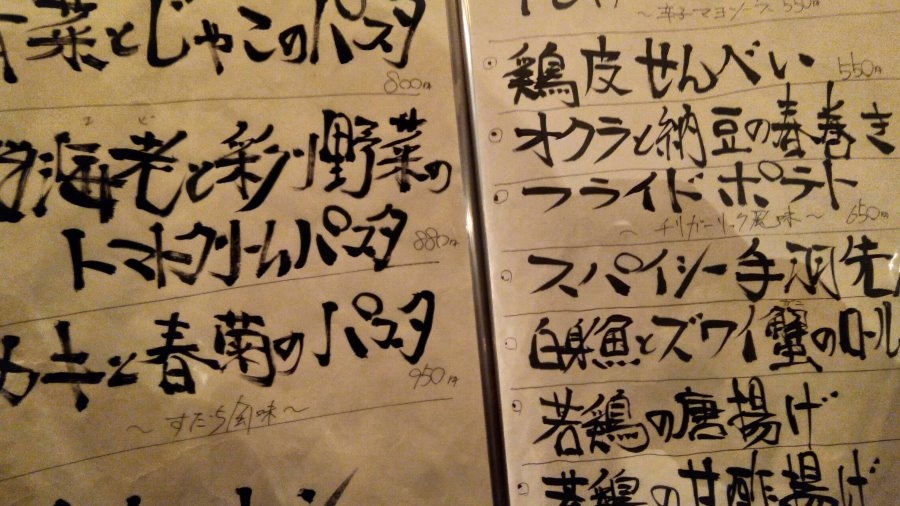 菜とじゃこのパスタ
800円
海老と彩り野菜の
えび
トマトクリームパスタ
880円
カキと春菊のパスタ
950円
〜すだち風味〜
〜辛子マヨソース〜 550円
鶏皮せんべい
550円
オクラと納豆の春巻き
フライドポテト
〜チリガーリック風味〜 650円
スパイシー手羽先
白身魚とズワイ蟹のロール
若鶏の唐揚げ
若鶏の甘酢揚げ